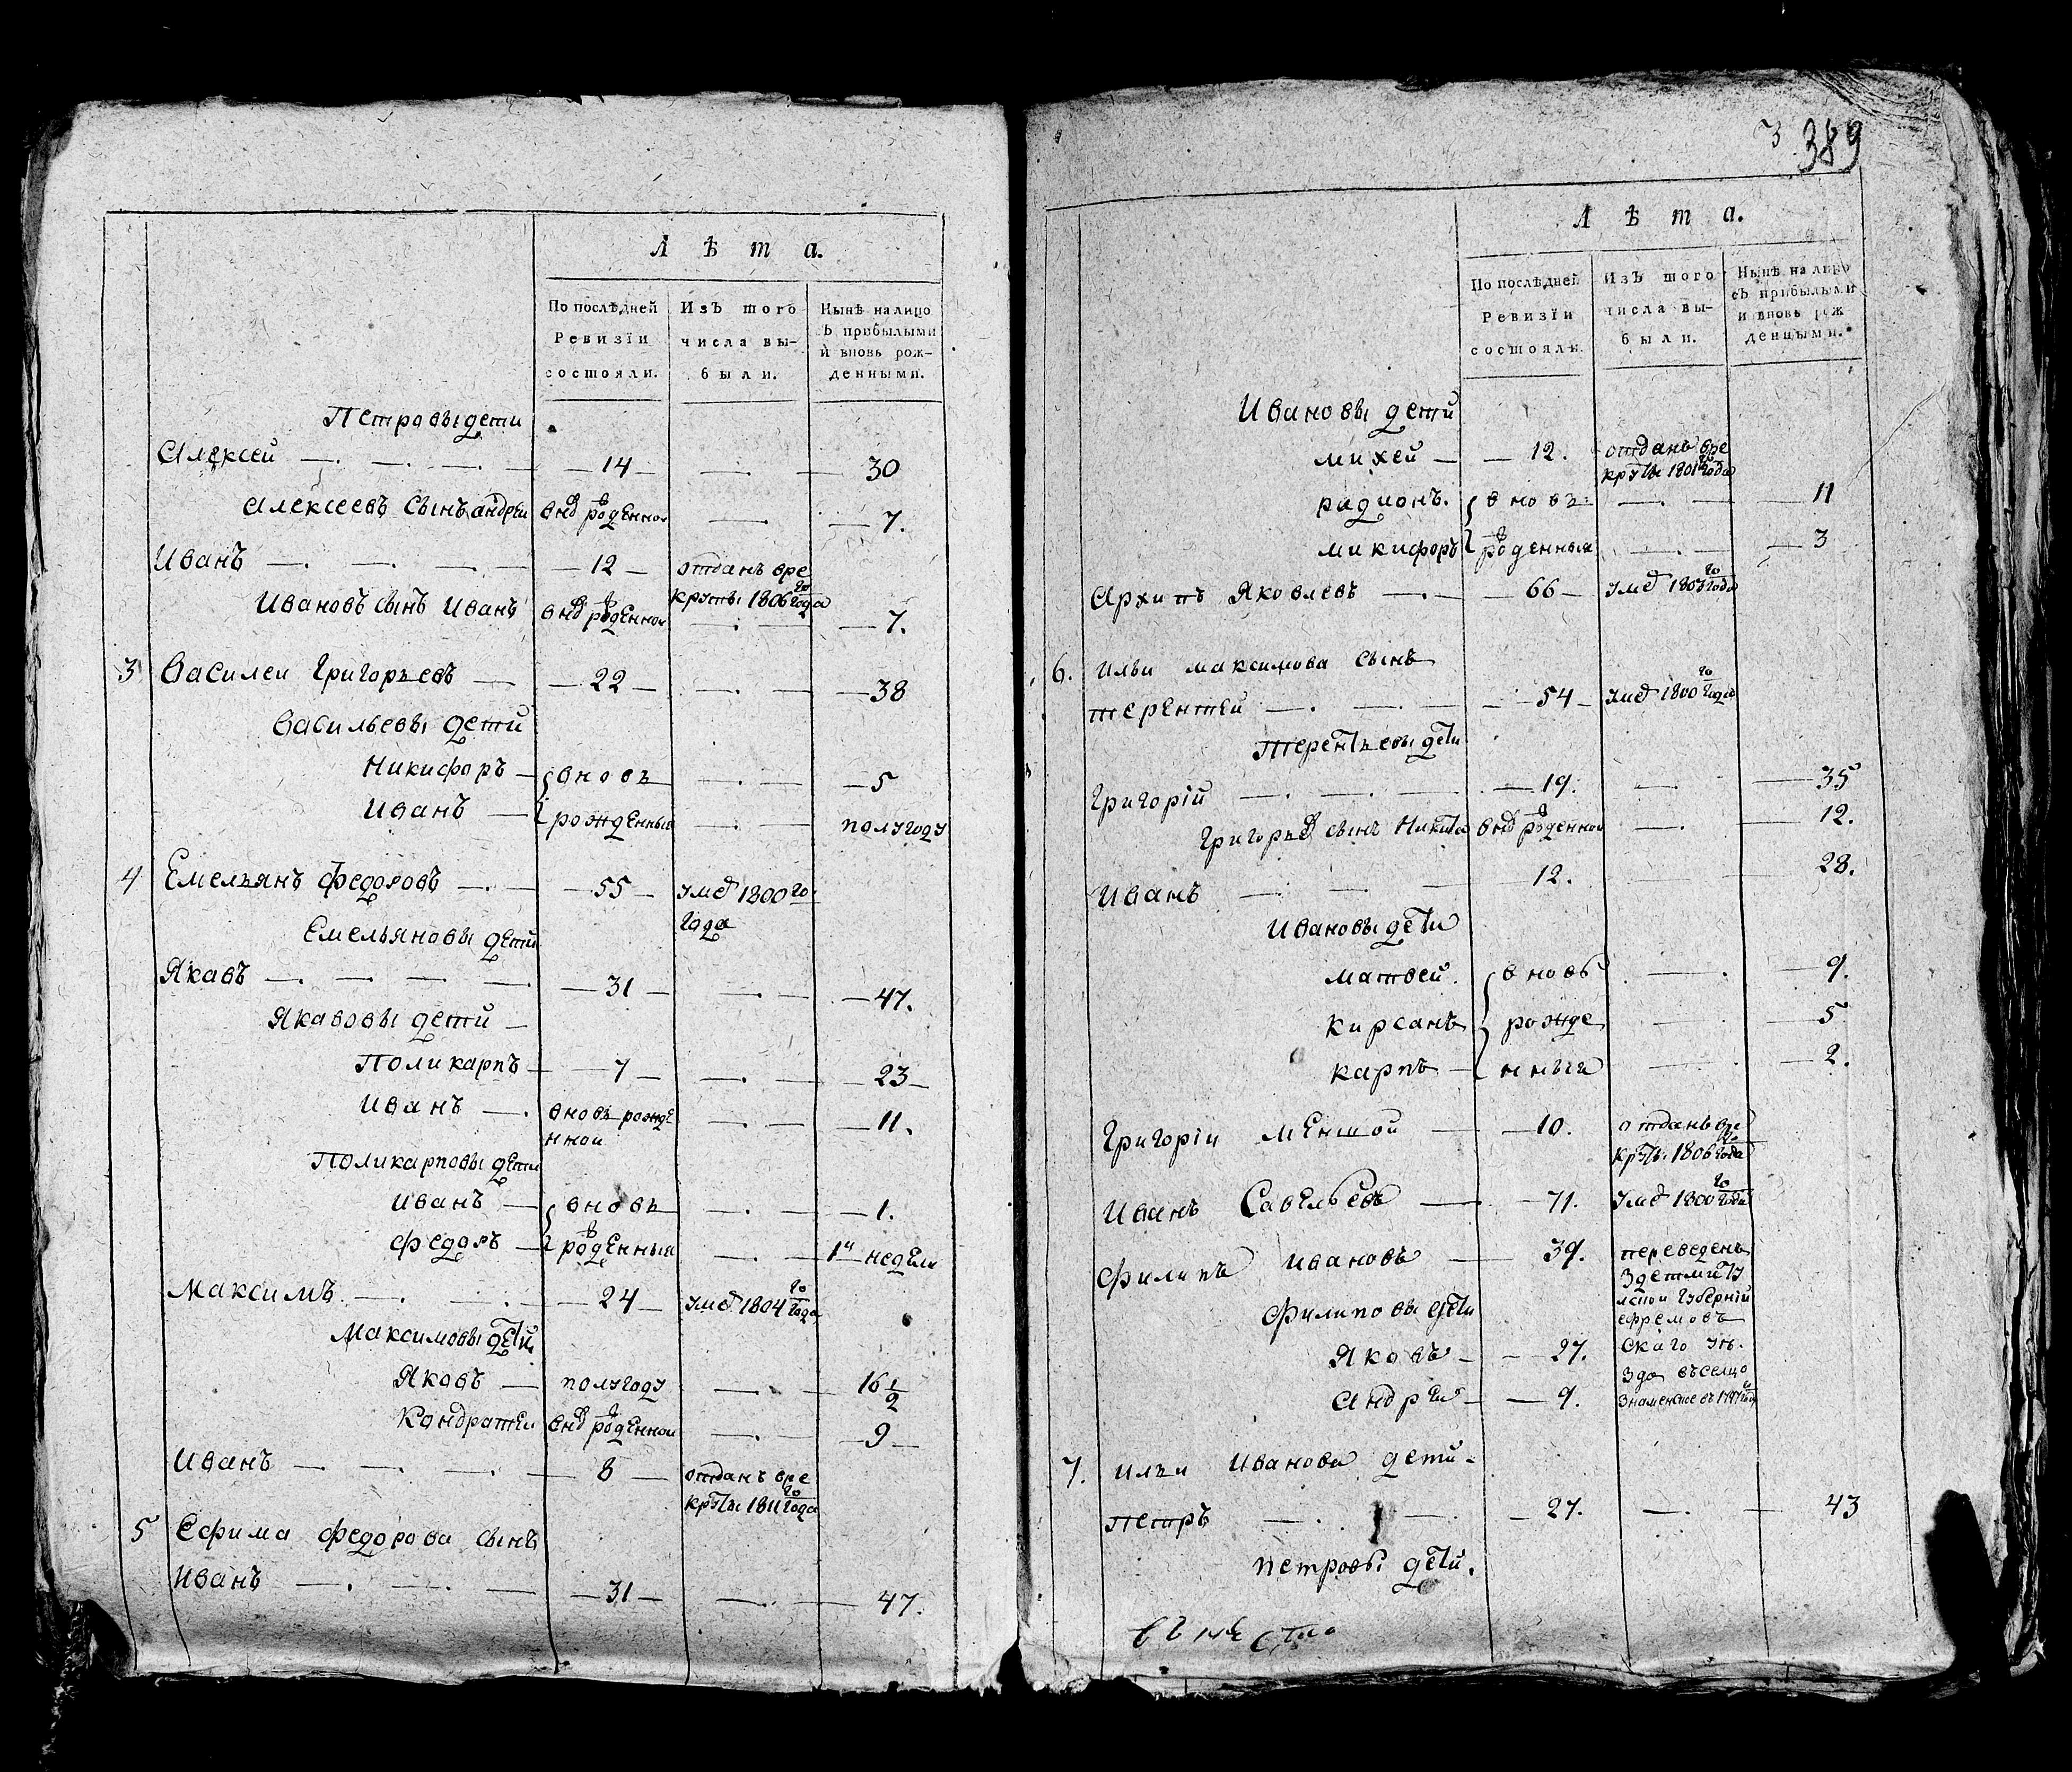 Лѣта.
По послѣдней Ревизїи состояли.
Изъ того числа выбыли.
Нынѣ на лицо съ прибылыми и вновь рожденными.
Петровы дети
Алексей 14 30
Алексеевъ сынъ андреи внов рожденнои 7.
Иванъ 12 отданъ вре
круты 1806го года
Ивановъ сынъ Иванъ внов рожденнои 7.
3 Василеи Григорьевъ 22 38
Васильевы дети
Никифоръ вновь 5
Иванъ рожденныя полугоду
4 Емельянъ Федоровъ 55 умеръ 1800го
года
Емельяновы дети
Якавъ 31 47.
Якавовы дети
Поликарпъ 7 23
Иванъ вновь рожде 11.
нной
Поликарповы дети
Иванъ вновь 1.
Федоръ рожденныя 1й недели
Максимъ 24 умеръ 1804го года
Максимовы дети
Яковъ полугоду 16 1/2
Кондратеи внов рожденнои 9
Иванъ 8 отданъ вре
круты 1811го года
5 Ефима Федорова сынъ
Иванъ 31 47.
3 389
Лѣта.
По послѣдней Ревизїи состояли.
Изъ того числа выбыли.
Нынѣ на лицо съ прибылыми и вновь рожденными.
Ивановы дети
михей 12. отданъ вре
круты 1801го года
радионъ. вновь 11
микифоръ рожденныя 3
Архипъ Яковлевъ 66 умеръ 1803го года
6. ильи максимова сынъ
терентей 54 умеръ 1800го года
Терентьевы дети
Григорій 19. 35
Григорьев сынъ Никита внов рожденнои 12.
Иванъ 12. 28.
Ивановы дети
матвей. вновь 9.
кирсанъ рожде 5
карпъ нныя 2.
Григоріи меншой 10. отданъ вре
круты 1806го года
Иванъ Савельевъ 71. умеръ 1800го года
Филипъ Ивановъ 39. переведенъ
з детми Ту
лской Губерній
Филиповы дети ефремовъ
Яковъ 27. скаго уез.
зда въселцо
Андреи 9. Знаменское въ 1797го году
7. ильи Иванова дети
петръ 27. 43
петровы дети.